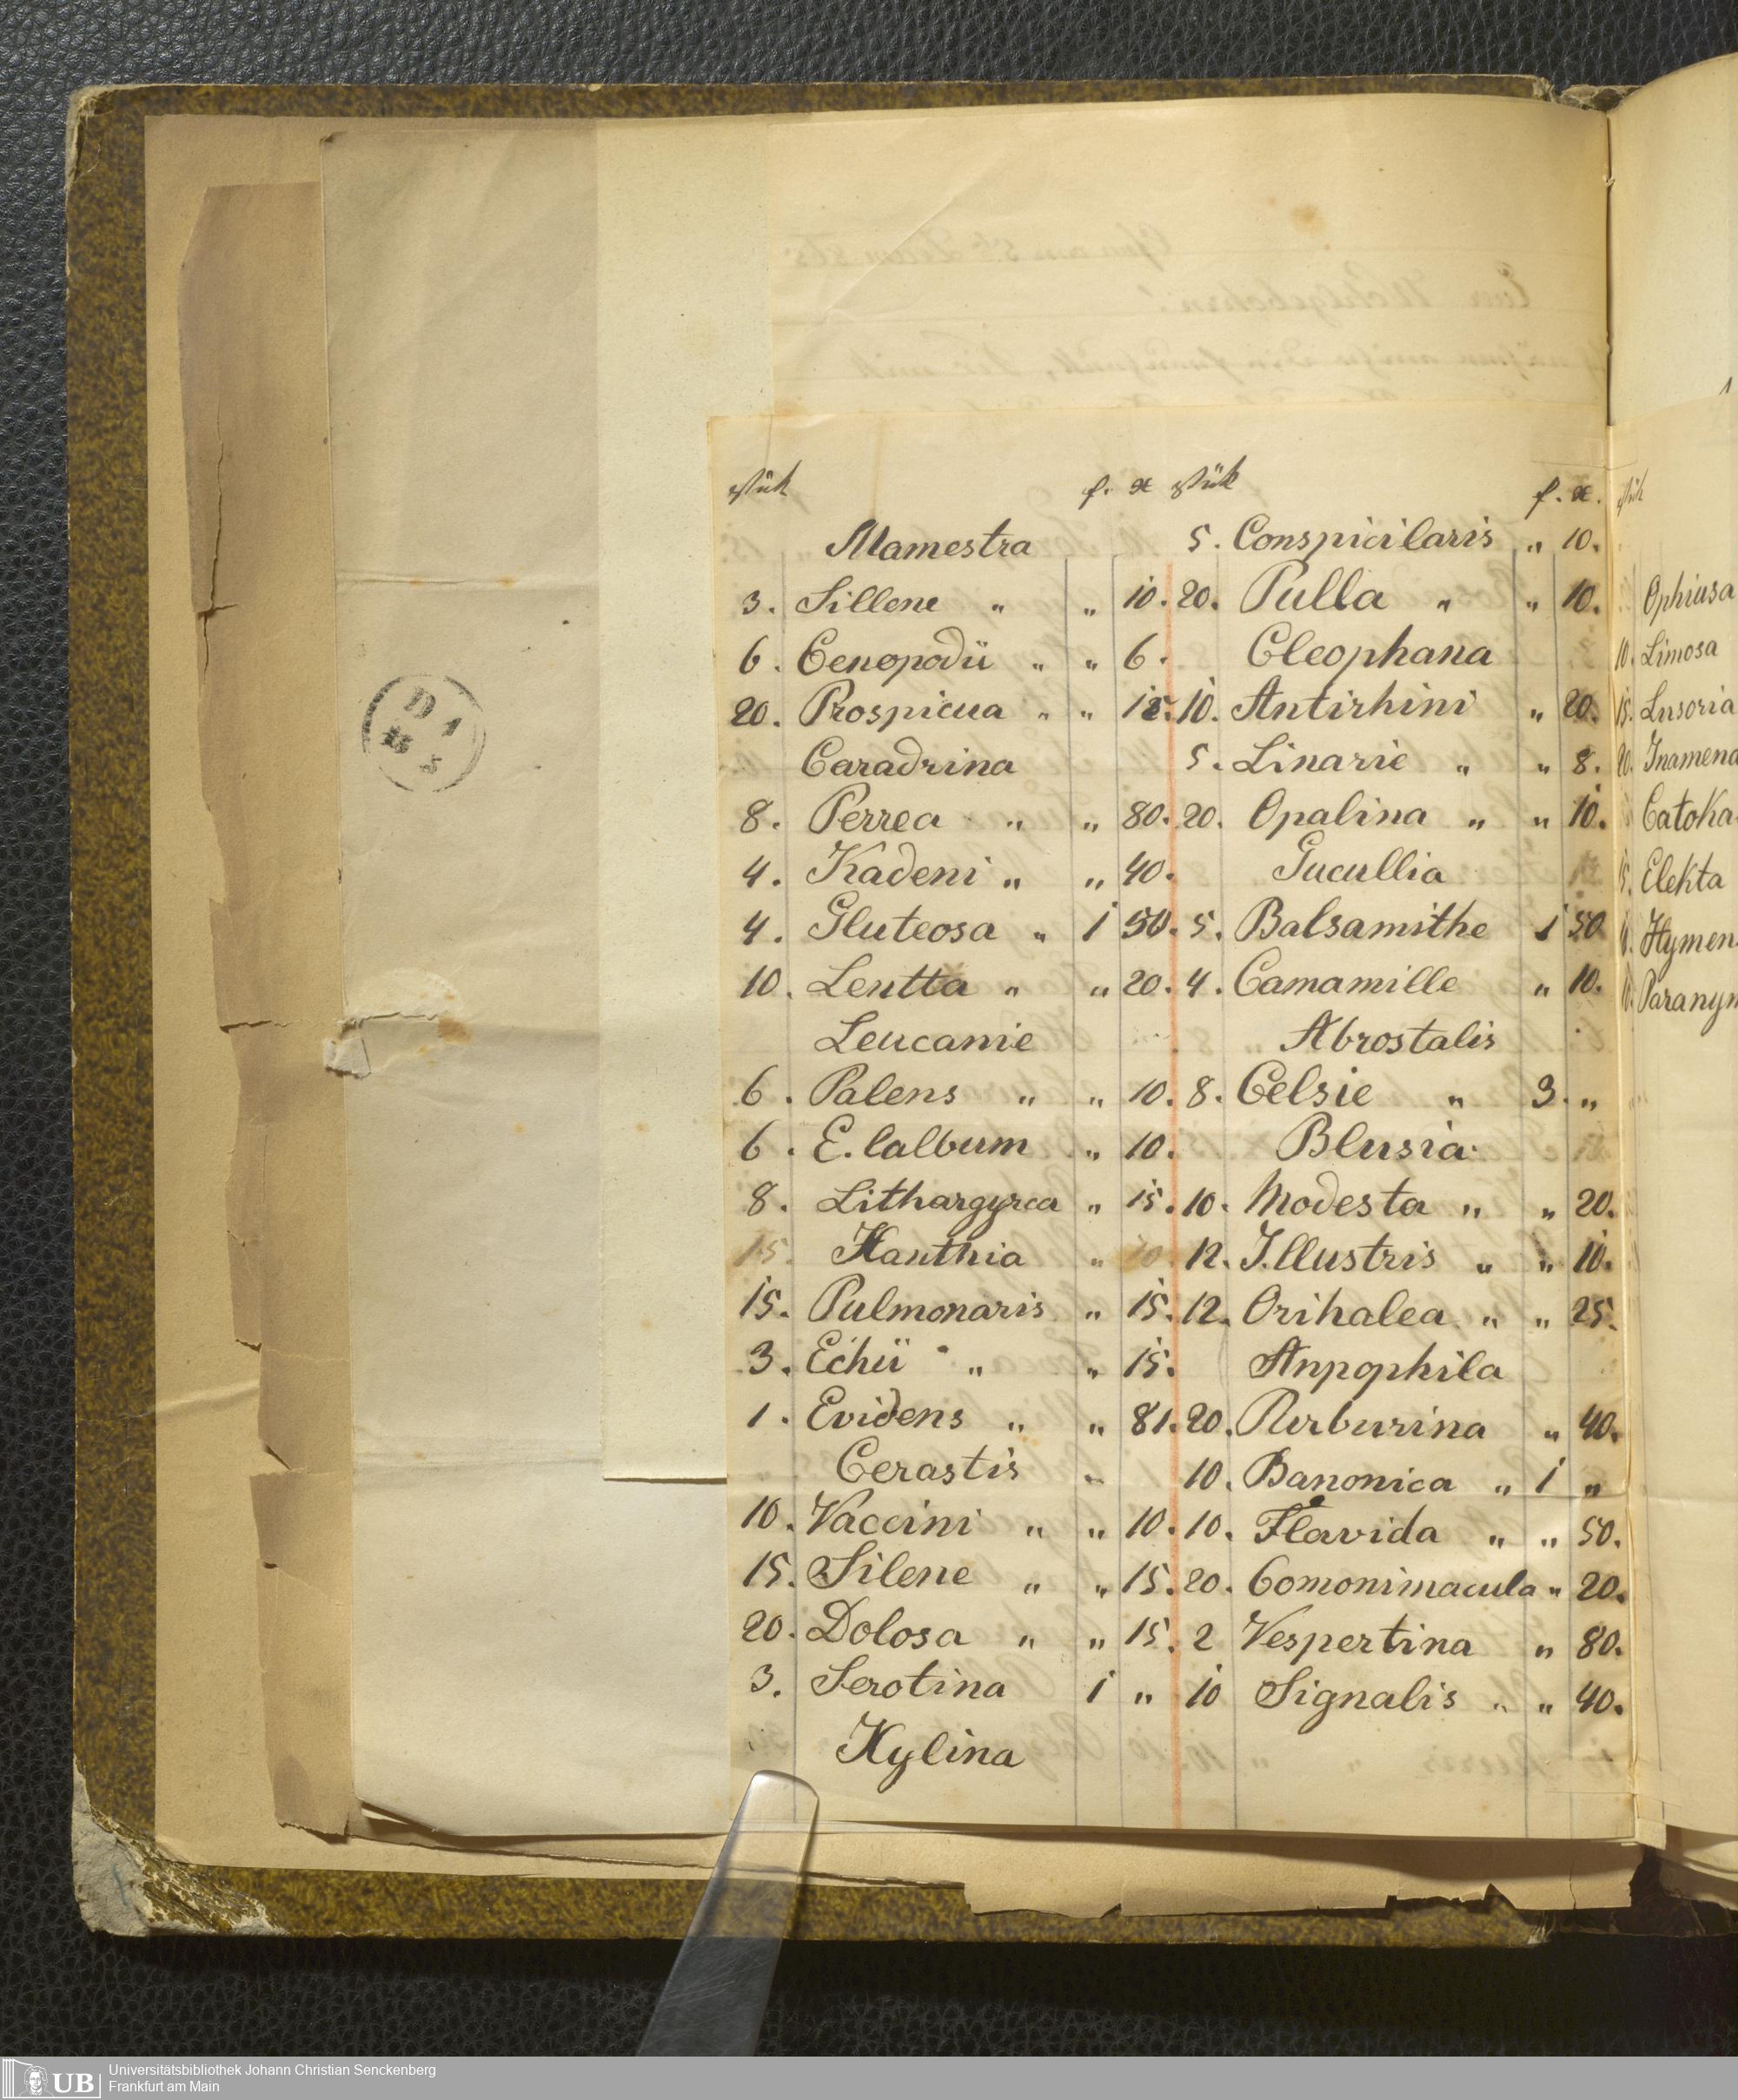 stük f. x
Mamestra
3. Sillene " " 10.
6. Cenopodii " " 6.
20. Prospicua " "
Caradrina
8. Perrea " " 80.
4. Kadeni " " 40.
4. Gluteosa " 1 50.
10. Lentta " " 20.
Leucanie
6. Palens " " 10.
6. E. lalbum " 10.
8. Lithargyrea " 15.
15. Xanthia " 10.
15. Pulmonaris " 15.
3. Echii " " 15.
1. Evidens " " 81.
Cerastis "
10. Vaccini " " 10.
15. Silene " " 15.
20. Dolosa " " 15.
3. Serotina 1 "
Xylina
stük f. x.
5. Conspicilaris " 10.
20. Pulla " " 10.
Cleophana
10. Antirhini " 20.
5. Linarie " " 8.
20. Opalina " " 10.
Cucullia
5. Balsamithe 1 50
4. Camamille " 10.
Abrostalis
8. Celsie " 3. "
Blusia
10. Modesta " " 20.
12. Illustris " " 10.
12. Orihalea " " 25.
Anpophila
20. Purburina " 40.
10. Banonica " 1 "
10. Flavida " " 50.
20. Comonimacula " 20.
2 Vespertina " 80.
10 Signalis " " 40.
stük
Ophiusa
10. Limosa
15. Lusoria
20. Inamena
Catoka
15. Elekta
Hymen
Paranym
UB Universitätsbibliothek Johann Christian Senckenberg
Frankfurt am Main